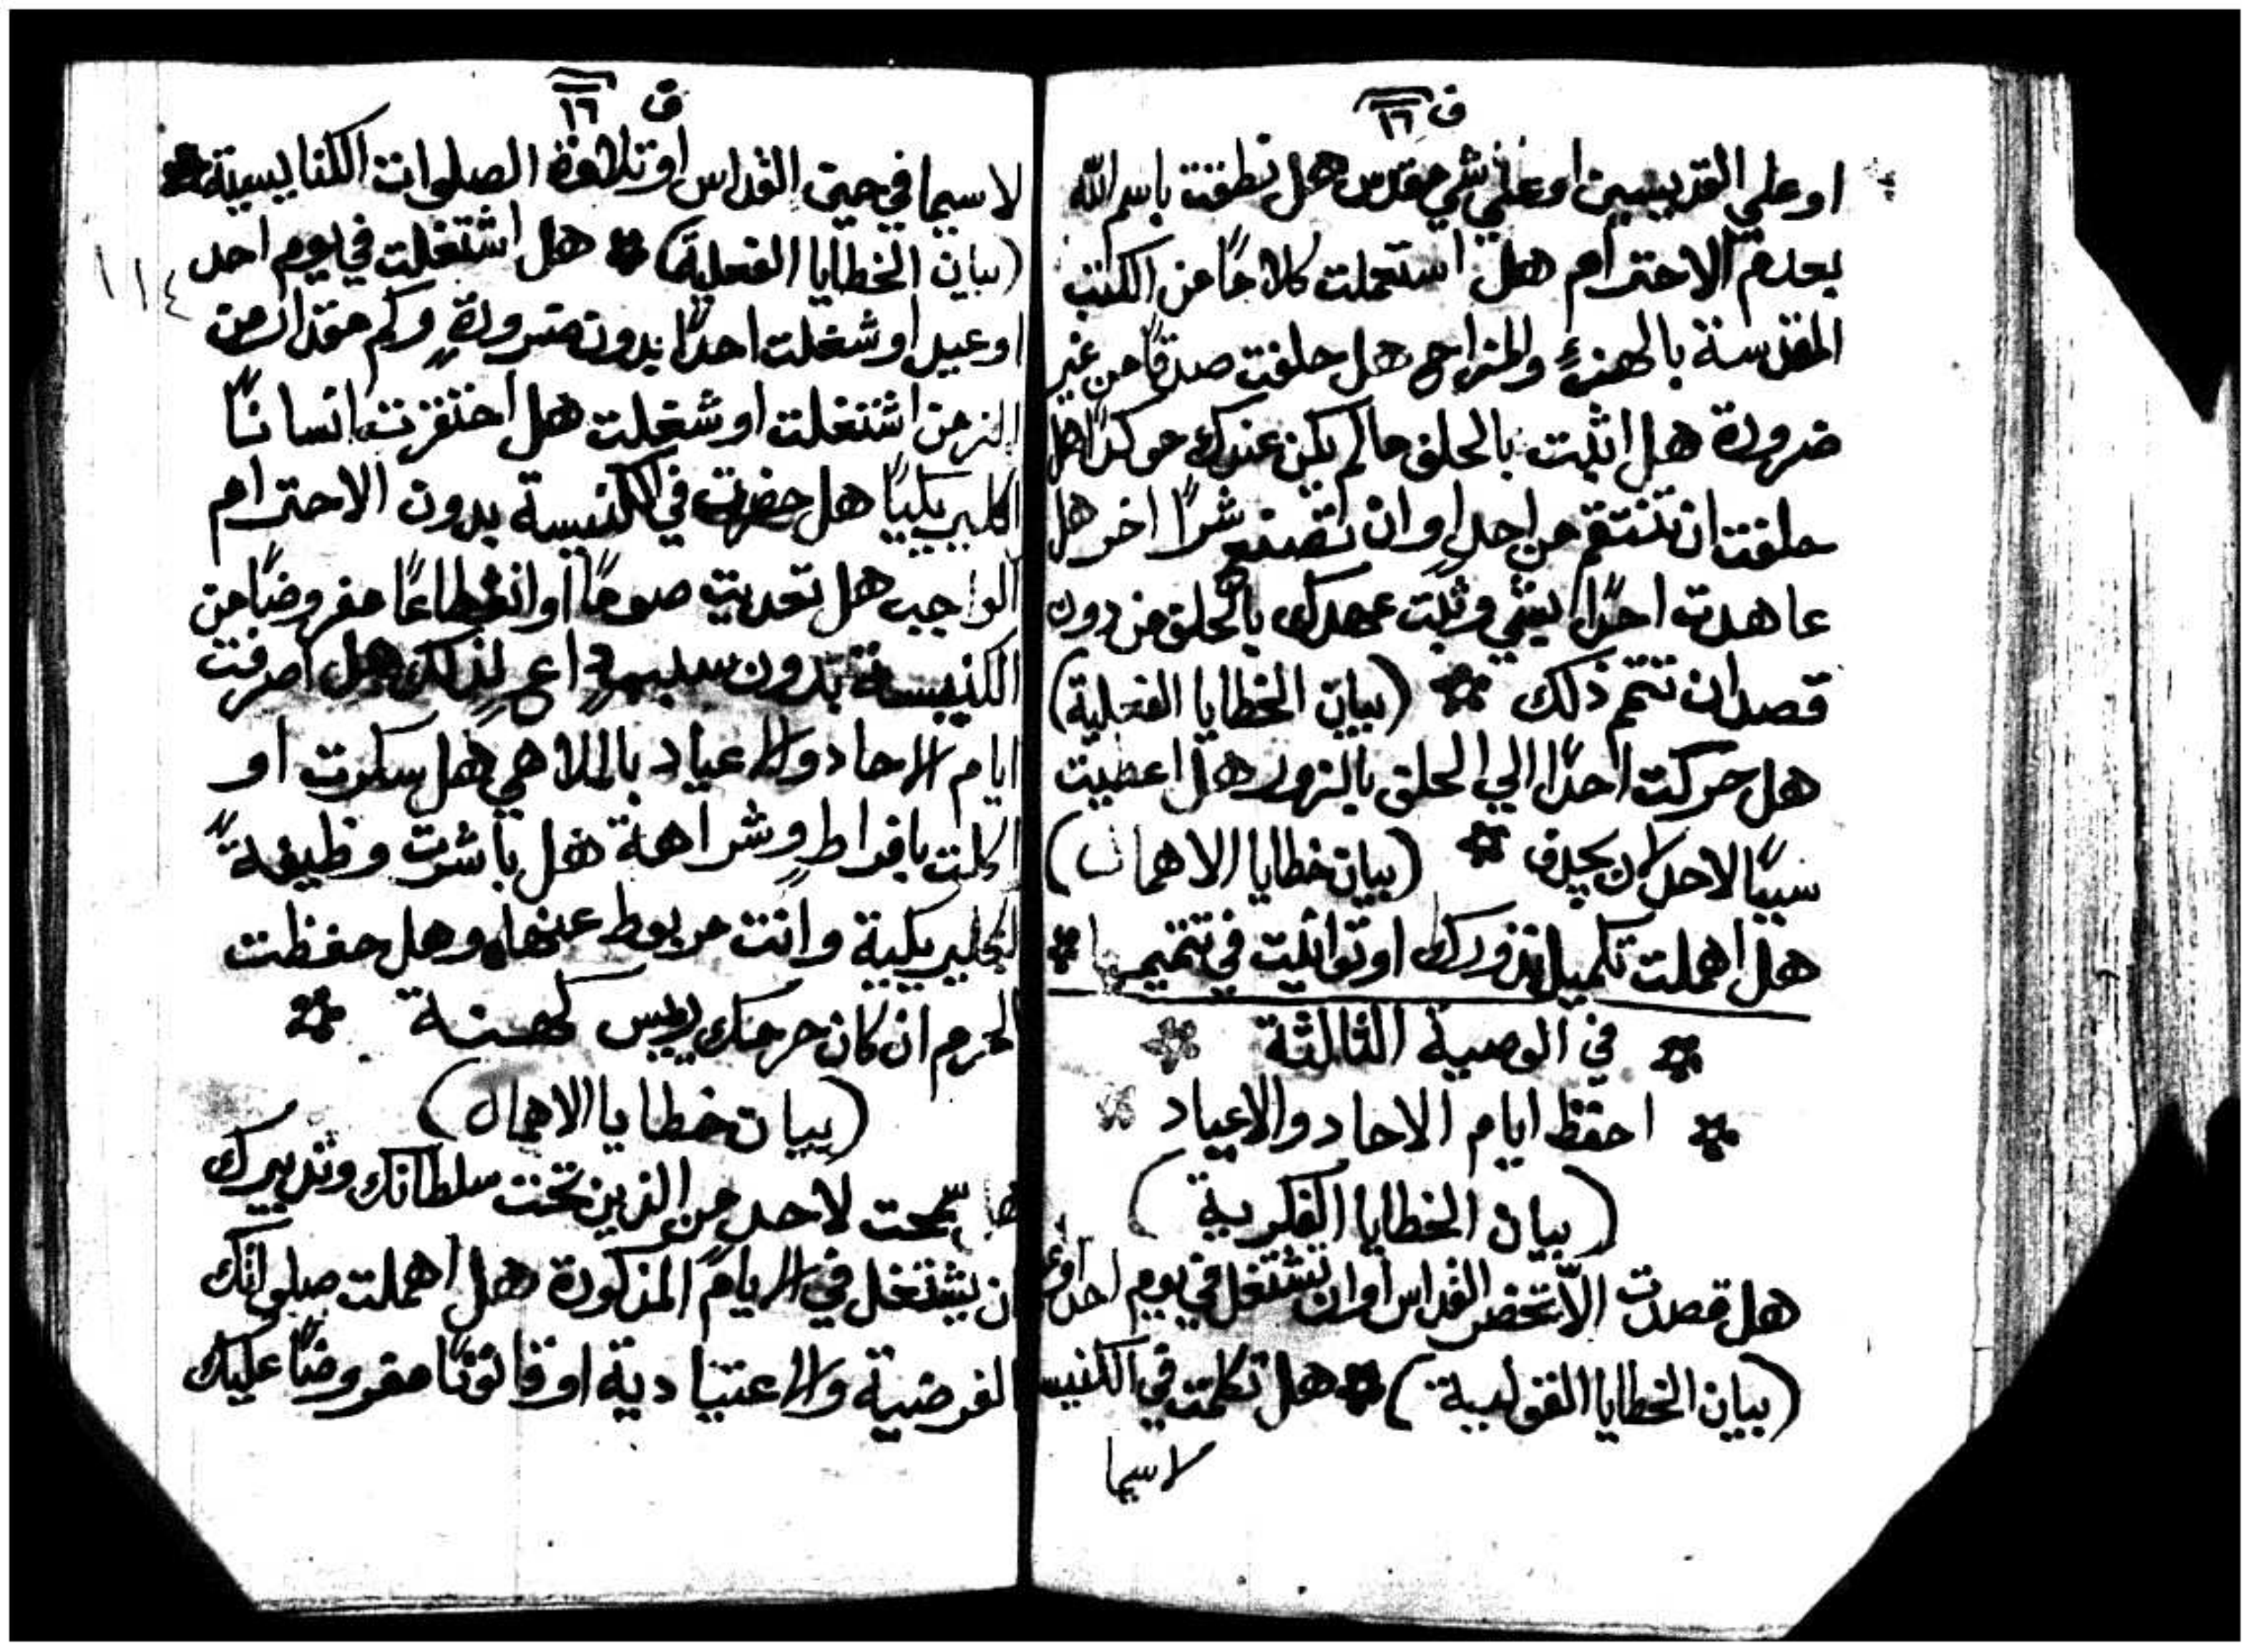 ق ١٦
او علي القديسين او علي شي مقدس هل نطقت باسم الله
بعدم الاحترام هل استعملت كلامًا من الكتب
المقدسة بالهزءِ والمزاح هل حلفت صدقًا من غير
ضرورة هل اثبت بالحلف ما لم يكن عندك موكدًا هل
حلفت ان تنتقم من احدٍ او ان تصنع شرًا اخر هل
عاهدت احدًا بشي وثبت عهدك بالحلف من دون
قصد ان تتمم ذلك (بيان الخطايا الفعلية)
هل حركت احدًا الي الحلف بالزور هل اعطيت
سببًا لاحد لان يجدف (بيان خطايا الاهمال)
هل اهملت تكميل نذورك او توانيت في تتميمها
في الوصية الثالثة
احفظ ايام الاحاد والاعياد
(بيان الخطايا الفكرية)
هل قصدت الّا تحضر القداس او ان تشتغل في يوم احد او
(بيان الخطايا القولية) هل تكلمت في الكنيسة
لاسيما
ق ١٦
لاسيما في حين القداس او تلاوة الصلوات الكنايسية
(بيان الخطايا الفعلية) هل اشتغلت في يوم احد
١١٤
او عيد او شغلت احدًا بدون ضرورةٍ وكم مقدار من
الزمن اشتغلت او شغلت هل احتقرت انسانًا
اكليريكيًا هل حضرت في الكنيسة بدون الاحترام
الواجب هل تعديت صومًا او انقطاعًا مفروضًا من
الكنيسة بدون سببٍ داعٍ لذلك هل اصرفت
ايام الاحاد والاعياد بالملاهي هل سكرت او
اكلت بافراطٍ وشراهة هل باشرت وظيفةً
اكليريكية وانت مربوط عنها وهل حفظت
الحرم ان كان حرمك ريس كهنة
(بيان خطايا الاهمال)
هل سمحت لاحد من الذين تحت سلطانك وتدبيرك
ان يشتغل في الايام المذكورة هل اهملت صلواتك
الفرضية والاعتيادية او قانونًا مفروضًا عليك